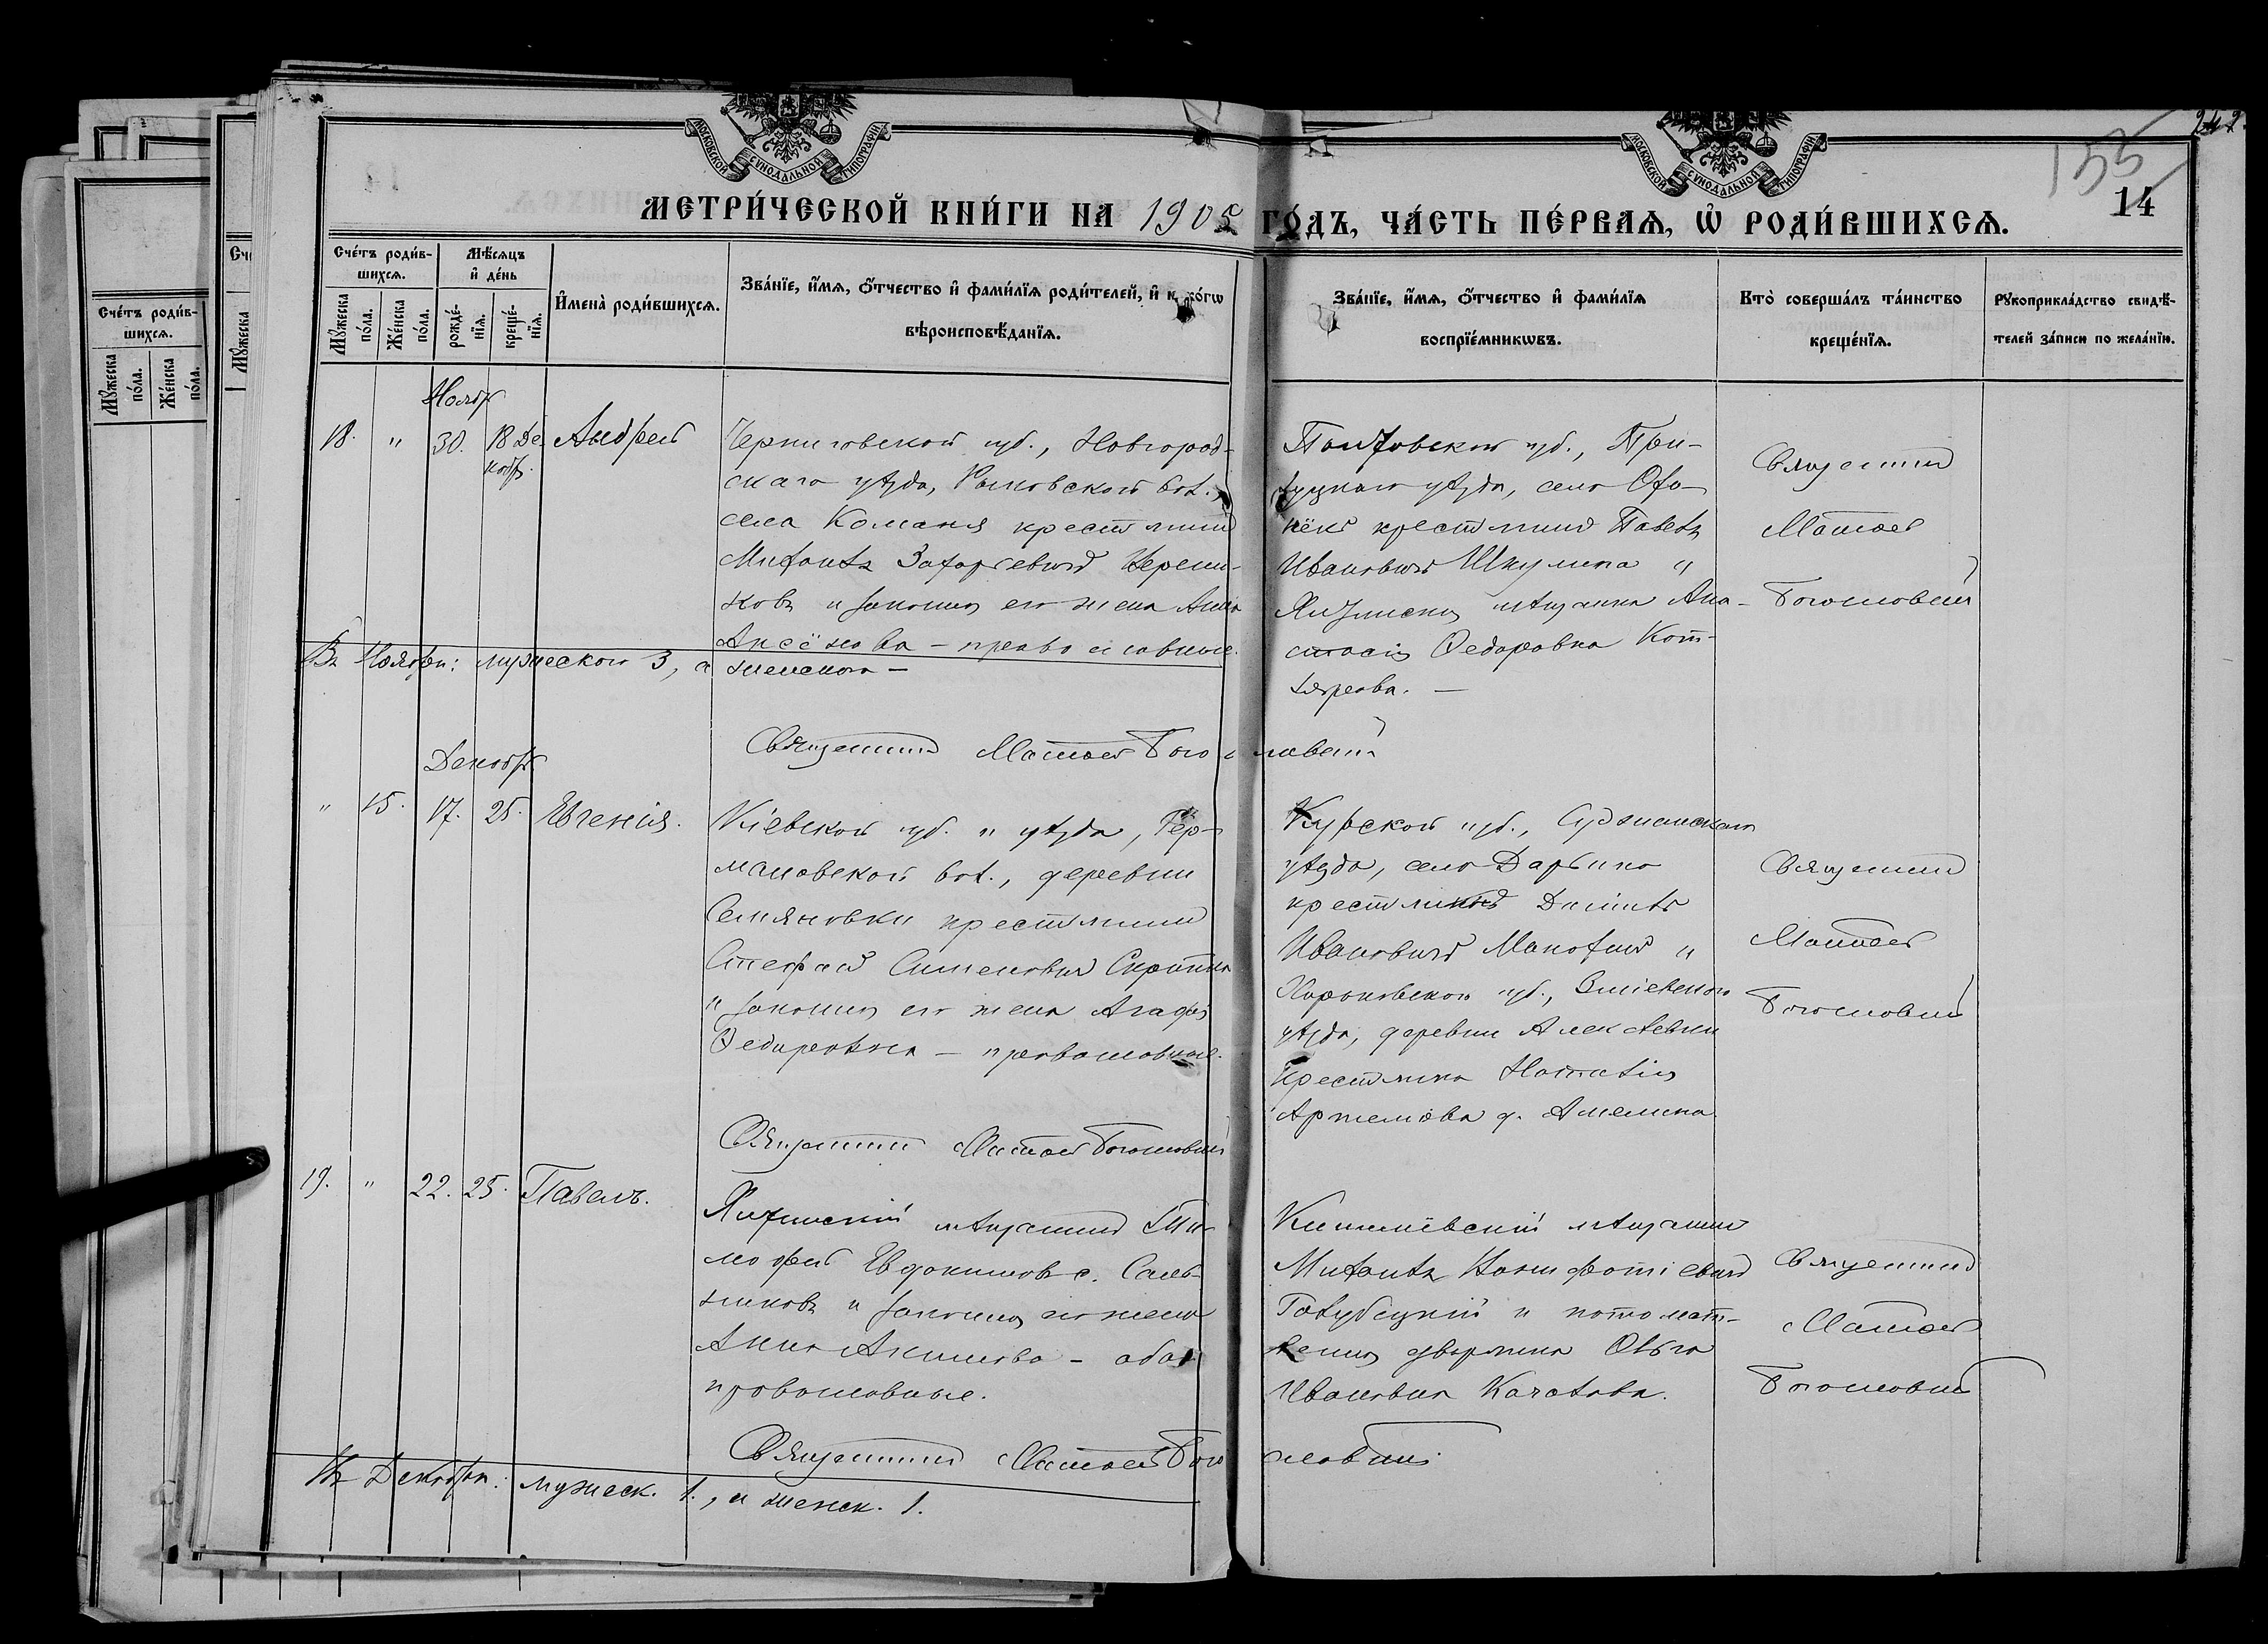 МОСКОВСКОЙ СУНОДАЛЬНОЙ ТИПОГРАФІИ
МОСКОВСКОЙ СУНОДАЛЬНОЙ ТИПОГРАФІИ
242
155
14
МЕТРИ́ЧЕСКОЙ КНИ́ГИ НА 1905 ГО́ДЪ, ЧА́СТЬ ПЕ́РВАЯ, Ѡ҆ РОДИ́ВШИХСЯ.
Сче́тъ роди́в-
шихся.
Мꙋжеска по́ла.
Же́нска по́ла.
Мѣ́сяцъ
и҆ де́нь
рожде́-
нїя.
креще́-
нїя.
И҆мена̀ роди́вшихся.
Зва́нїе, и҆́мя, ѻ҆́тчество и҆ фами́лїя роди́телей, и҆ како́гѡ
вѣроисповѣ́данїя.
Зва́нїе, и҆́мя, ѻ҆́тчество и҆ фами́лїя
воспрїе́мникѡвъ.
Кто̀ соверша́лъ та́инство
креще́нїя.
Рꙋкоприкла́дство свидѣ́-
телей за́писи по жела́нїю.
Сче́тъ роди́в-
шихся.
Мꙋжеска по́ла.
Же́нска по́ла.
Мꙋжеска
Ноябр
18. " 30. 18 Де
кабр.
Андрей
Черниговской губ., Новгород-
скаго уѣзда, вол.,
села Комань крестьянин
Михаилъ Захарьевич
ковъ и законная его жена Анна
Аксёнова - православные.
Полтавской губ., При-
луцкаго уѣзда, села
крестьянин Павелъ
Иванович Шкулипа и
Ялтинская мѣщанка Ана-
стасія Федоровна Кот-
лярева. —
Священник
Матвей
Богословский
Въ Ноябрѣ: мужескаго 3, а женскаго —
Священник Матвей Богословский
Декабрь
" 15. 17. 25. Евгенія.
Кіевской губ. и уѣзда, Гер-
мановской вол., деревни
Семяновки крестьянин
Стефан Симеонович Скрипка
и законная его жена Агафія
Федоровна — православные.
Курской губ., Суджанскаго
уѣзда, села Дарьино
крестьянин Даниилъ
Иванович Манохин и
Харьковской губ., Зміевскаго
уѣзда, деревни Алексѣевки
крестьянка Наталія
Артемова д. Амелина
Священник
Матвей
Богословский
Священник Матвей Богословский
19. " 22. 25. Павелъ.
Ялтинский мѣщанин Ти-
мофей Евдокимов с. Саль-
никовъ и законная его жена
Анна Акимова - оба
православные.
Кишинёвский мѣщанин
Михаилъ
Голубицкий и потомст-
венная дворянка Ольга
Ивановна Качалова.
Священник
Матвей
Богословский
Священник Матвей Богословский
Въ Декабрѣ: мужеск. 1., и женск. 1.